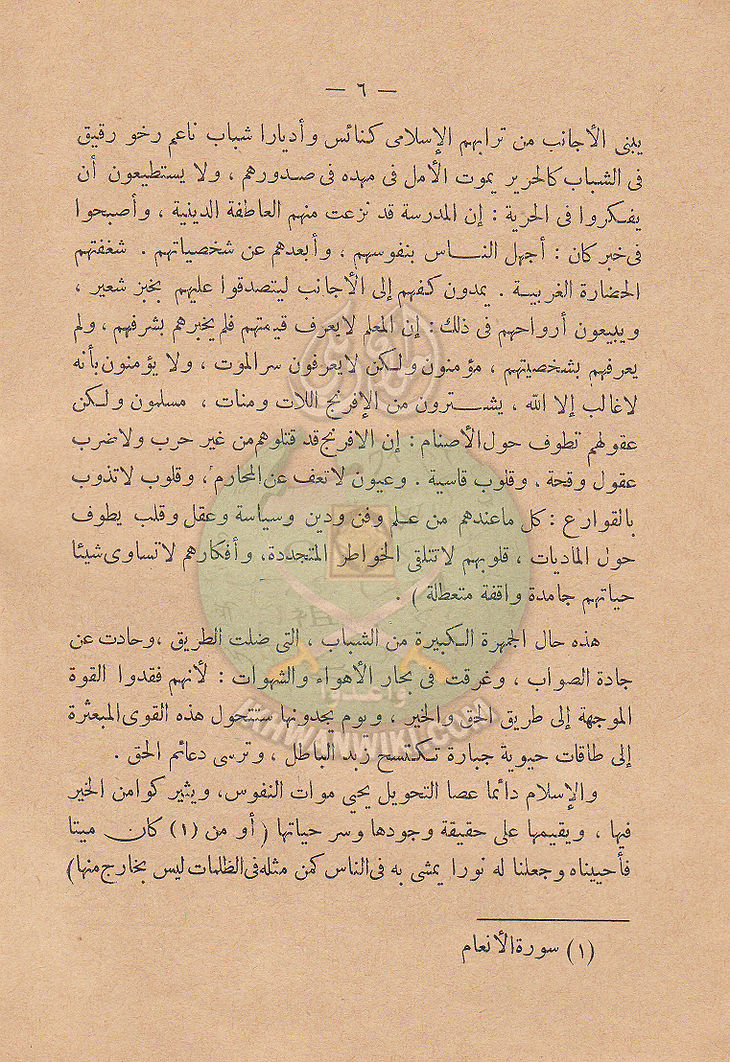 — ٦ —
يبنى الأجانب من ترابهم الإسلامى كنائس وأديارا شباب ناعم رخو رقيق
فى الشباب كالحرير يموت الأمل فى مهده فى صدورهم ، ولا يستطيعون أن
يفكروا فى الحرية : إن المدرسة قد نزعت منهم العاطفة الدينية ، وأصبحوا
فى خبر كان : أجهل الناس بنفوسهم ، وأبعدهم عن شخصياتهم . شغفتهم
الحضارة الغربية . يمدون كفهم إلى الأجانب ليتصدقوا عليهم بخبز شعير ،
ويبيعون أرواحهم فى ذلك : إن المعلم لا يعرف قيمتهم فلم يخبرهم بشرفهم ، ولم
يعرفهم بشخصيتهم ، مؤمنون ولكن لا يعرفون سر الموت ، ولا يؤمنون بأنه
لا غالب إلا الله ، يشترون من الإفرنج اللات ومنات ، مسلمون ولكن
عقولهم تطوف حول الأصنام : إن الافرنج قد قتلوهم من غير حرب ولا ضرب
عقول وقحة . وقلوب قاسية . وعيون لا تعف عن المحارم ، وقلوب لا تذوب
بالقوارع : كل ما عندهم من علم وفن ودين وسياسة وعقل وقلب يطوف
حول الماديات ، قلوبهم لا تتلقى الخواطر المتجددة ، وأفكارهم لا تساوى شيئا
حياتهم جامدة واقفة متعطلة ) .
هذه حال الجمهرة الكبيرة من الشباب ، التى ضلت الطريق ، وحادت عن
جادة الصواب ، وغرقت فى بحار الأهواء والشهوات : لأنهم فقدوا القوة
الموجهة إلى طريق الحق والخير ، ويوم يجدونها ستتحول هذه القوى المبعثرة
إلى طاقات حيوية جبارة تكتسح زبد الباطل ، وترسى دعائم الحق .
والإسلام دائما عصا التحويل يحيي موات النفوس ، ويثير كوامن الخير
فيها ، ويقيمها على حقيقة وجودها وسر حياتها ( أو من (١) كان ميتا
فأحييناه وجعلنا له نورا يمشى به فى الناس كمن مثله فى الظلمات ليس بخارج منها )
(١) سورة الأنعام
وأعدوا
IKHWANWIKI.COM